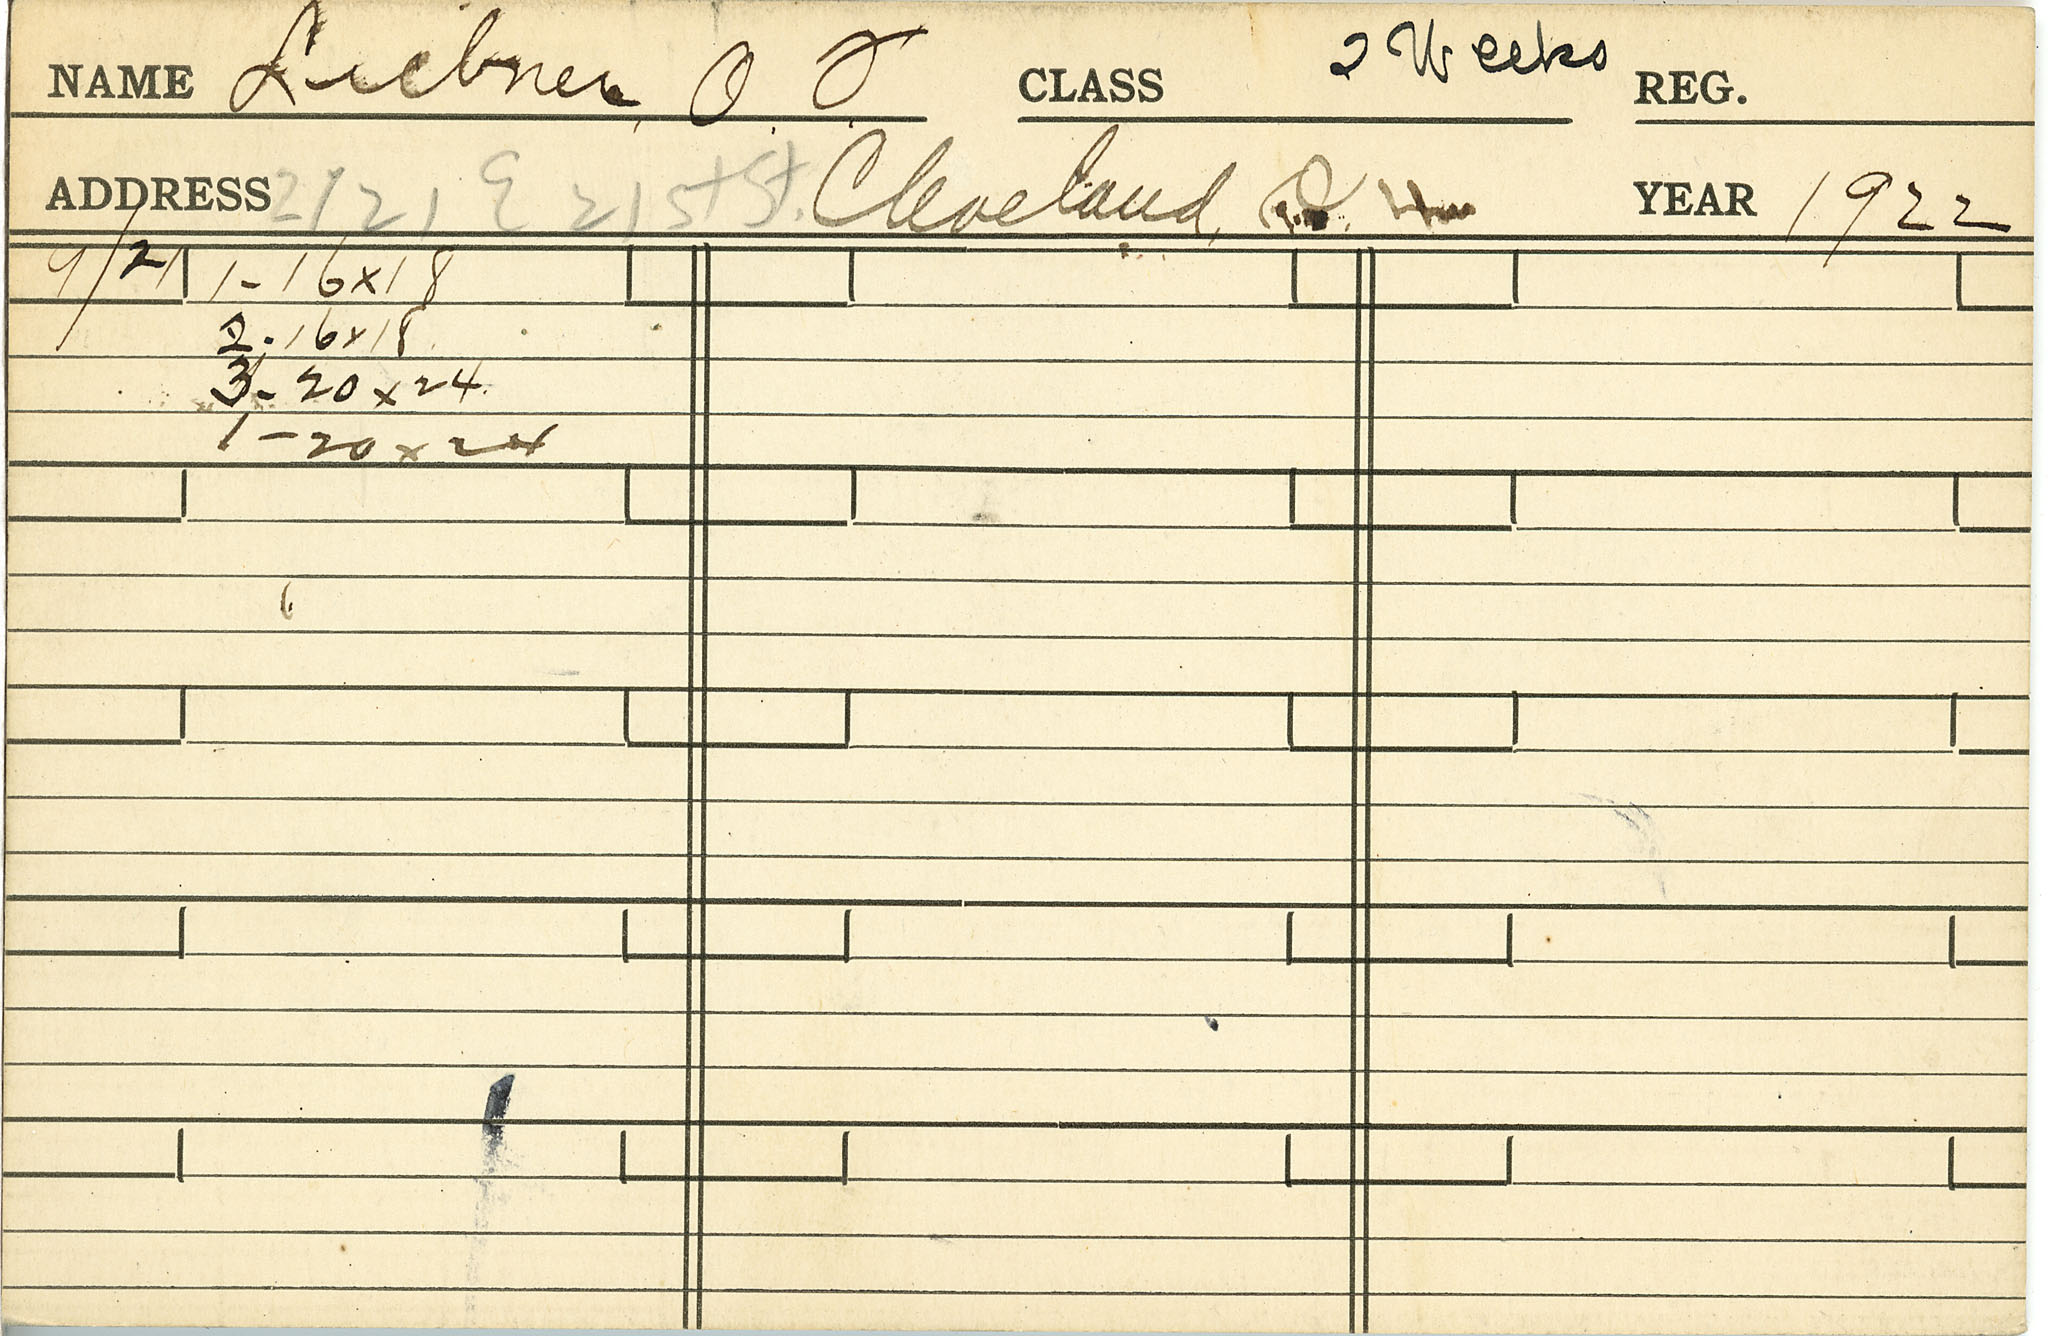 NAME Liebner, O. J. CLASS 2 Weeks REG.
ADDRESS 2121 E 21st St. Cleveland, O. YEAR 1922
9/21 1-16x18
2-16x18
3-20x24
1-20x24